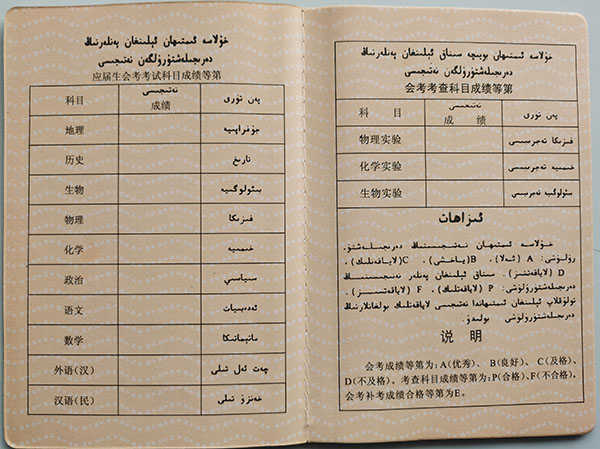 خۇلاسە ئىمتىھان ئېلىنغان پەنلەرنىڭ
دەرىجىلەشتۈرۈلگەن نەتىجىسى
应届生会考考试科目成绩等第
科目 نەتىجىسى 成绩 پەن تۈرى
地理 جۇغراپىيە
历史 تارىخ
生物 بىئولوگىيە
物理 فىزىكا
化学 خىمىيە
政治 سىياسىي
语文 ئەدەبىيات
数学 ماتېماتىكا
外语(汉) چەت ئەل تىلى
汉语(民) خەنزۇ تىلى
خۇلاسە ئىمتىھان بويىچە سىناق ئېلىنغان پەنلەرنىڭ
دەرىجىلەشتۈرۈلگەن نەتىجىسى
会考考查科目成绩等第
科 目 نەتىجىسى 成 绩 پەن تۈرى
物理实验 فىزىكا تەجرىبىسى
化学实验 خىمىيە تەجرىبىسى
生物实验 بىئولوگىيە تەجرىبىسى
ئىزاھات
خۇلاسە ئىمتىھان نەتىجىسىنىڭ دەرىجىلەشتۈ-
رۈلۈشى: A (ئەلا)، B(ياخشى)، C(لاياقەتلىك)،
D (لاياقەتسىز). سىناق ئېلىنغان پەنلەر نەتىجىسىنىڭ
دەرىجىلەشتۈرۈلۈشى: P (لاياقەتلىك)، F (لاياقەتسىز).
تولۇقلاپ ئېلىنغان ئىمتىھاندا نەتىجىسى لاياقەتلىك بولغانلارنىڭ
دەرىجىلەشتۈرۈلۈشى بولىدۇ.
说 明
会考成绩等第为:A(优秀)、B(良好)、C(及格)、
D(不及格)。考查科目成绩等第为:P(合格)、F(不合格),
会考补考成绩合格等第为E。